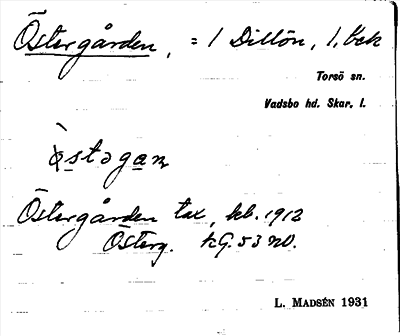 Östergården, = 1 Dillön, 1. bek
Torsö sn.
Vadsbo hd. Skar. l.
östəgan
Östergården tax, kb. 1912
Österg. hG. 53 NO.
L. Madsén 1931